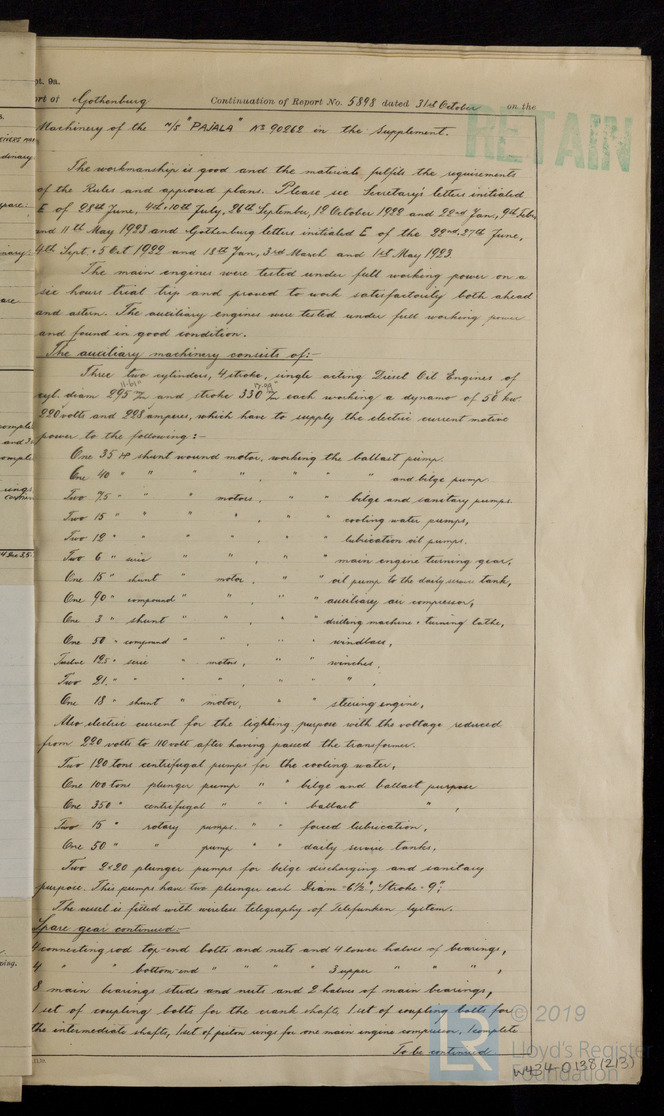 pt. 9a.
rt of Gothenburg Continuation of Report No. 5898 dated 31st October on the
RETAIN
Machinery of the M/S "PAJALA" No 90262 in the Supplement.
The workmanship is good and the materials fulfils the requirements
of the Rules and approved plans. Please see Secretary's letters initialed
E of 28th June, 4th & 10th July, 26th September, 12 October 1922 and 22nd Jan, 9th Febr.
and 11th May 1923 and Gothenburg letters initialed E of the 22nd, 27th June,
4th Sept. & 5 Oct 1922 and 18th Jan, 3rd March and 1st May 1923.
The main engines were tested under full working power on a
six hours trial trip and proved to work satisfactorily both ahead
and astern. The auxiliary engines were tested under full working power
and found in good condition.
The auxiliary machinery consists of:-
Three two cylinders, 4 stroke, single acting Diesel Oil Engines of
11.61" 12.99"
cyl. diam 295 m/m and stroke 330 m/m each working a dynamo of 50 kw.
220 volts and 228 amperes, which have to supply the electric current motive
power to the following:-
One 35 HP shunt wound motor, working the ballast pump.
One 40 " " " " , " " " and bilge pump.
Two 7,5 " " " motors, " " bilge and sanitary pumps.
Two 15 " " " " , " " cooling water pumps,
Two 12 " " " " , " " lubrication oil pumps.
Two 6 " serie " " , " " main engine turning gear,
One 15 " shunt " motor, " " oil pump to the daily service tank,
One 90 " compound " " , " " auxiliary air compressor,
One 3 " shunt " " , " " drilling machine & turning lathe,
One 50 " compound " " , " " windlass,
Twelve 12,5 " serie " motors, " " winches.
Two 21. " " " " , " " " ,
One 18 " shunt " motor, " " steering engine,
Also electric current for the lighting purpose with the voltage reduced
from 220 volts to 110 volt after having passed the transformer.
Two 120 tons centrifugal pumps for the cooling water,
One 100 tons plunger pump " " bilge and ballast purpose
One 350 " centrifugal " " " ballast " ,
Two 15 " rotary pumps. " " forced lubrication,
One 50 " " pump " " daily service tanks,
Two 2×20 plunger pumps for bilge discharging and sanitary
purpose. This pumps have two plunger each Diam = 6½", Stroke = 9";
The vessel is fitted with wireless telegraphy of Telefunken system.
Spare gear continued:-
4 connecting rod top-end bolts and nuts and 4 lower halves of bearings,
4 " " bottom-end " " " " 3 upper " " " ,
8 main bearings studs and nuts and 2 halves of main bearings,
1 set of coupling bolts for the crank shafts, 1 set of coupling bolts for
the intermediate shafts, 1 set of piston rings for one main engine compressor, 1 complete
To be continued.
© 2019
LR Lloyd's Register
Foundation
W434-0138 (2/3)